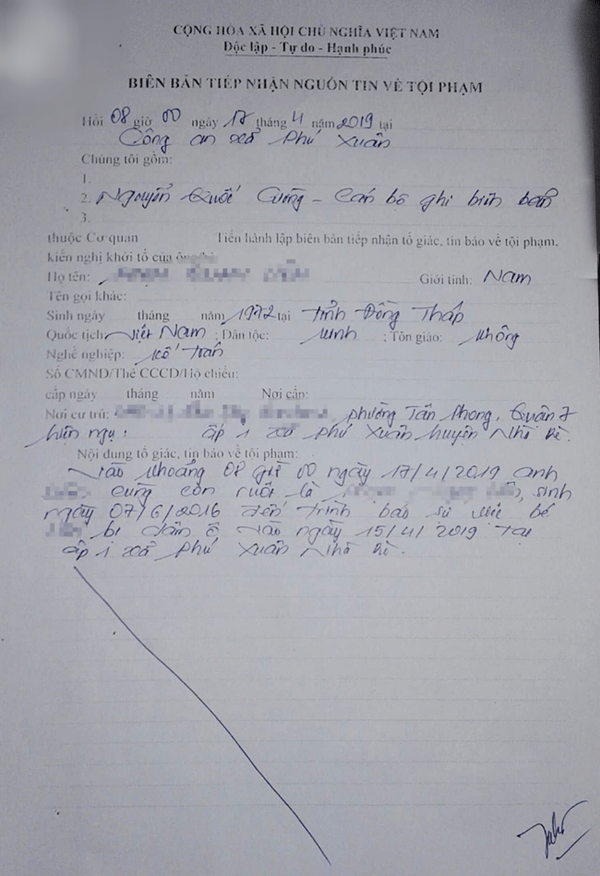 CỘNG HÒA XÃ HỘI CHỦ NGHĨA VIỆT NAM
Độc lập - Tự do - Hạnh phúc
BIÊN BẢN TIẾP NHẬN NGUỒN TIN VỀ TỘI PHẠM
Hồi 08 giờ 00 ngày 17 tháng 4 năm 2019 tại
Công an xã Phú Xuân
Chúng tôi gồm:
1.
2. Nguyễn Quốc Cường - Cán bộ ghi biên bản
3.
thuộc Cơ quan Tiến hành lập biên bản tiếp nhận tố giác, tin báo về tội phạm,
kiến nghị khởi tố của ông/bà:
Họ tên: Giới tính: Nam
Tên gọi khác:
Sinh ngày tháng năm 1972 tại Tỉnh Đồng Tháp
Quốc tịch: Việt Nam; Dân tộc: Kinh; Tôn giáo: Không
Nghề nghiệp:
Số CMND/Thẻ CCCD/Hộ chiếu:
cấp ngày tháng năm Nơi cấp:
Nơi cư trú: phường Tân Phong, Quận 7
hiện ngụ: ấp 1 xã Phú Xuân huyện Nhà Bè.
Nội dung tố giác, tin báo về tội phạm:
Vào khoảng 08 giờ 00 ngày 17/4/2019 anh
cùng con ruột là , sinh
ngày 07/6/2016 đến trình báo sự việc bé
bị dâm ô vào ngày 15/4/2019 tại
ấp 1 xã Phú Xuân Nhà Bè.